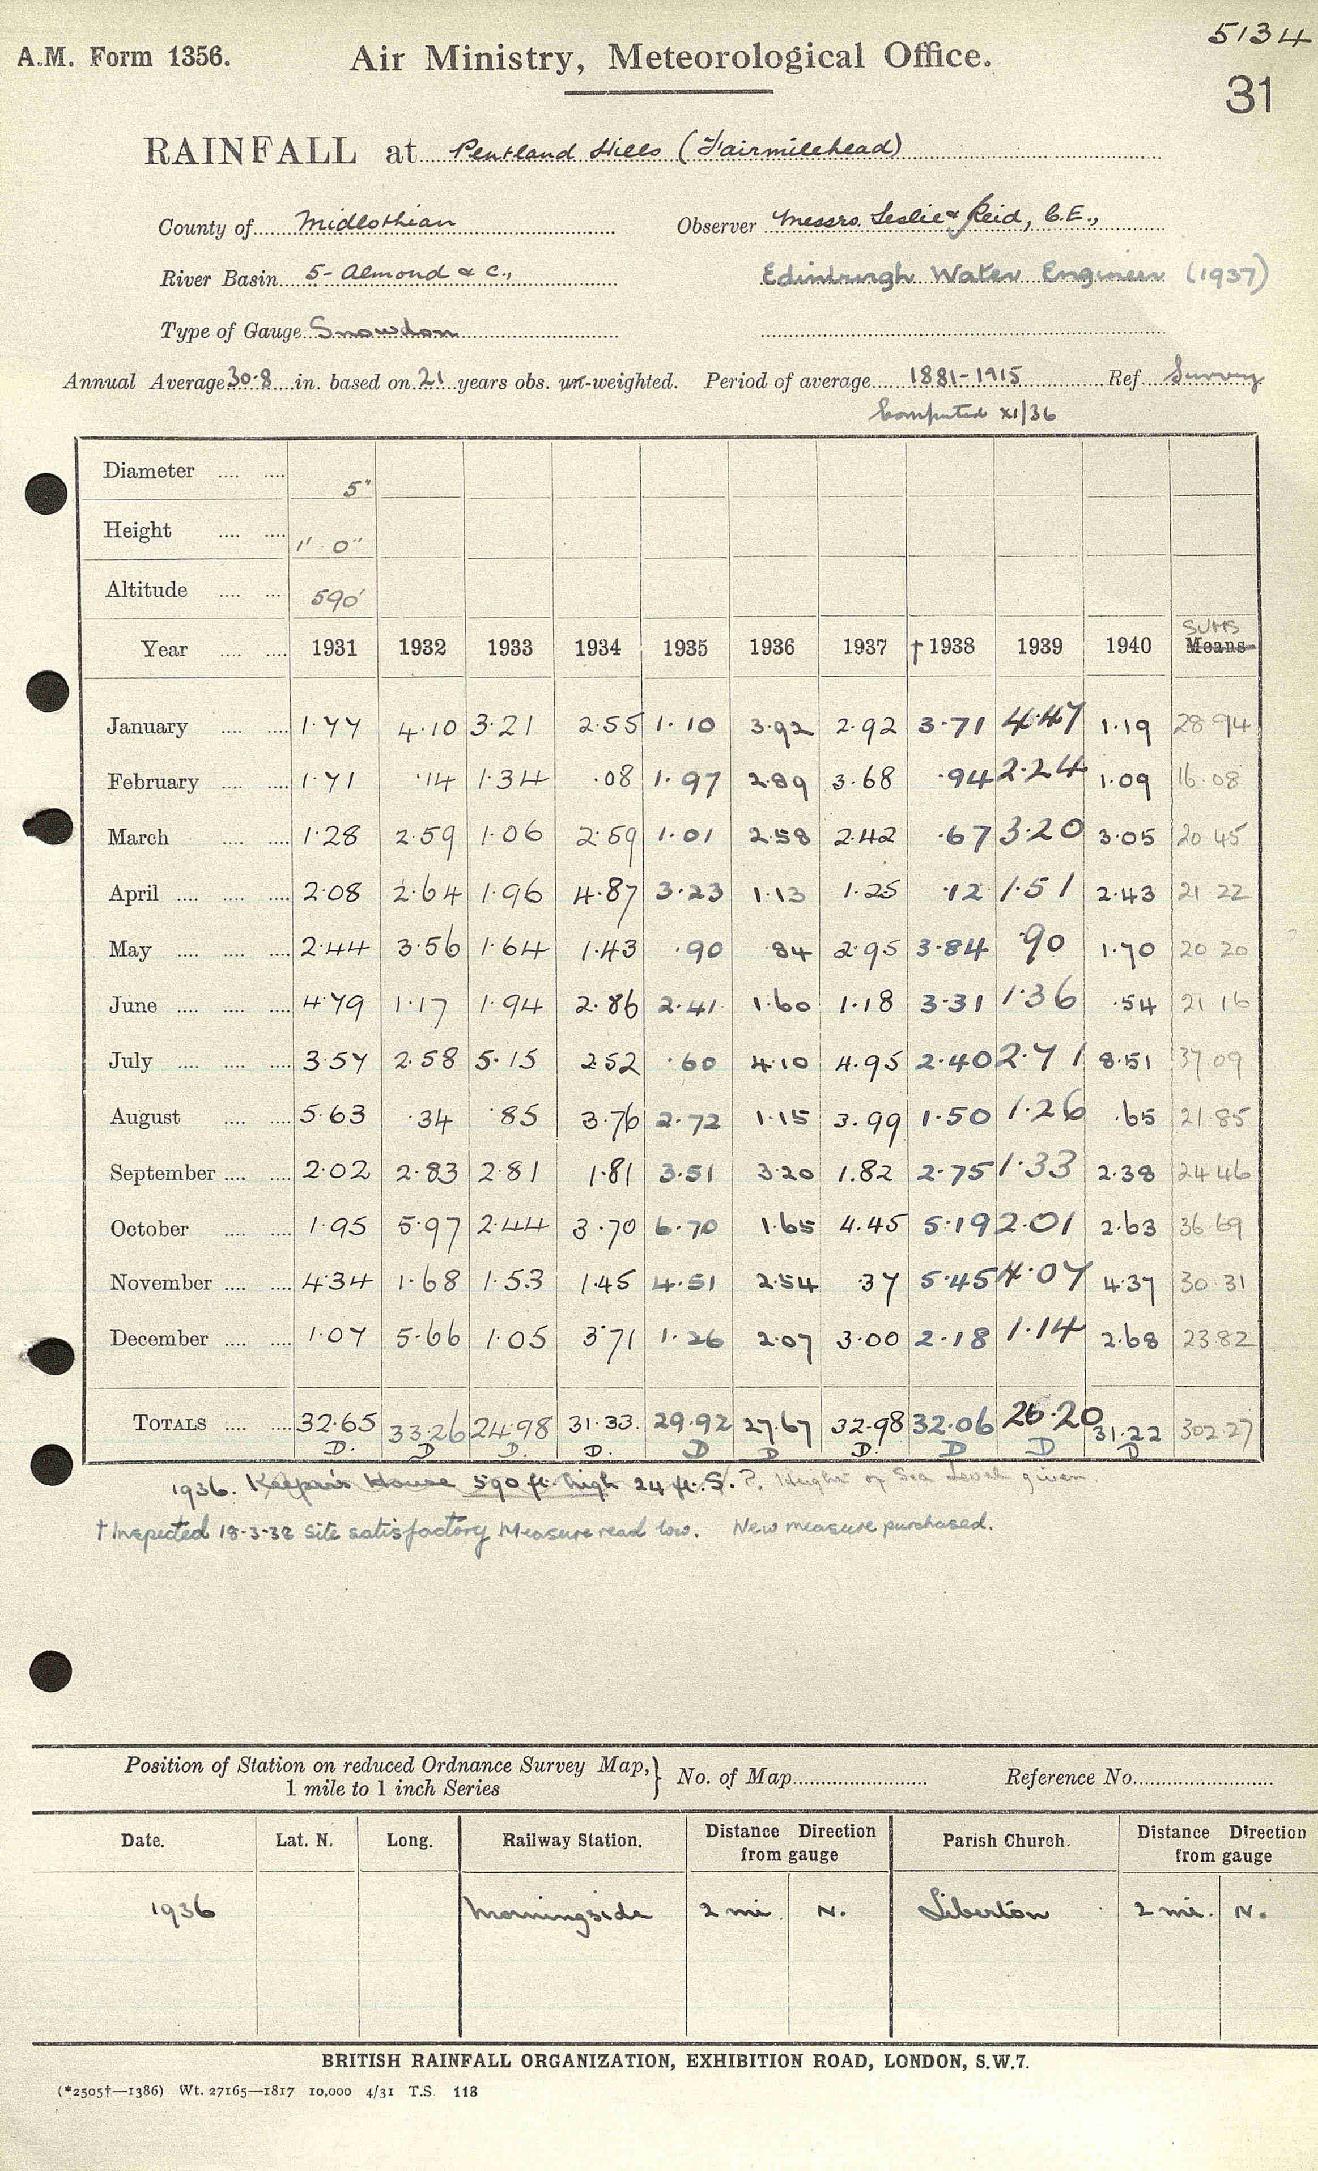 5134
A.M. Form 1356. Air Ministry, Meteorological Office.
31
RAINFALL at Pentland Hills (Fairmilehead)
County of Midlothian Observer Messrs. Leslie & Reid, C.E.,
River Basin 5- Almond & c., Edinburgh Water Engineer (1937)
Type of Gauge Snowdon
Annual Average 30.8 in. based on 21 years obs. un-weighted. Period of average 1881-1915 Ref Survey
Computed XI/36
Diameter 5"
Height 1' 0"
Altitude 590'
SUMS
Year 1931 1932 1933 1934 1935 1936 1937 †1938 1939 1940 Means
January 1.77 4.10 3.21 2.55 1.10 3.92 2.92 3.71 4.47 1.19 28.94
February 1.71 .14 1.34 .08 1.97 2.89 3.68 .94 2.24 1.09 16.08
March 1.28 2.59 1.06 2.59 1.01 2.58 2.42 .67 3.20 3.05 20.45
April 2.08 2.64 1.96 4.87 3.23 1.13 1.25 .12 1.51 2.43 21.22
May 2.44 3.56 1.64 1.43 .90 .84 2.95 3.84 .90 1.70 20.20
June 4.79 1.17 1.94 2.86 2.41 1.60 1.18 3.31 1.36 .54 21.16
July 3.57 2.58 5.15 2.52 .60 4.10 4.95 2.40 2.71 8.51 37.09
August 5.63 .34 .85 3.76 2.72 1.15 3.99 1.50 1.26 .65 21.85
September 2.02 2.83 2.81 1.81 3.51 3.20 1.82 2.75 1.33 2.38 24.46
October 1.95 5.97 2.44 3.70 6.70 1.65 4.45 5.19 2.01 2.63 36.69
November 4.34 1.68 1.53 1.45 4.51 2.54 .37 5.45 4.07 4.37 30.31
December 1.07 5.66 1.05 3.71 1.26 2.07 3.00 2.18 1.14 2.68 23.82
TOTALS 32.65 33.26 24.98 31.33 29.92 27.67 32.98 32.06 26.20 31.22 302.27
D. D D. D. D D D. D D D
1936. Keeper's House 590 ft. high 24 ft. S. ?. Height of Sea Level given
† Inspected 18-3-38 Site satisfactory Measure read low. New measure purchased.
Position of Station on reduced Ordnance Survey Map, 1 mile to 1 inch Series No. of Map Reference No.
Date. Lat. N. Long. Railway Station. Distance Direction from gauge Parish Church. Distance Direction from gauge
1936 Morningside 2 mi. N. Liberton 2 mi. N.
BRITISH RAINFALL ORGANIZATION, EXHIBITION ROAD, LONDON, S.W.7.
(*2505†—1386) Wt. 27165—1817 10,000 4/31 T.S. 118